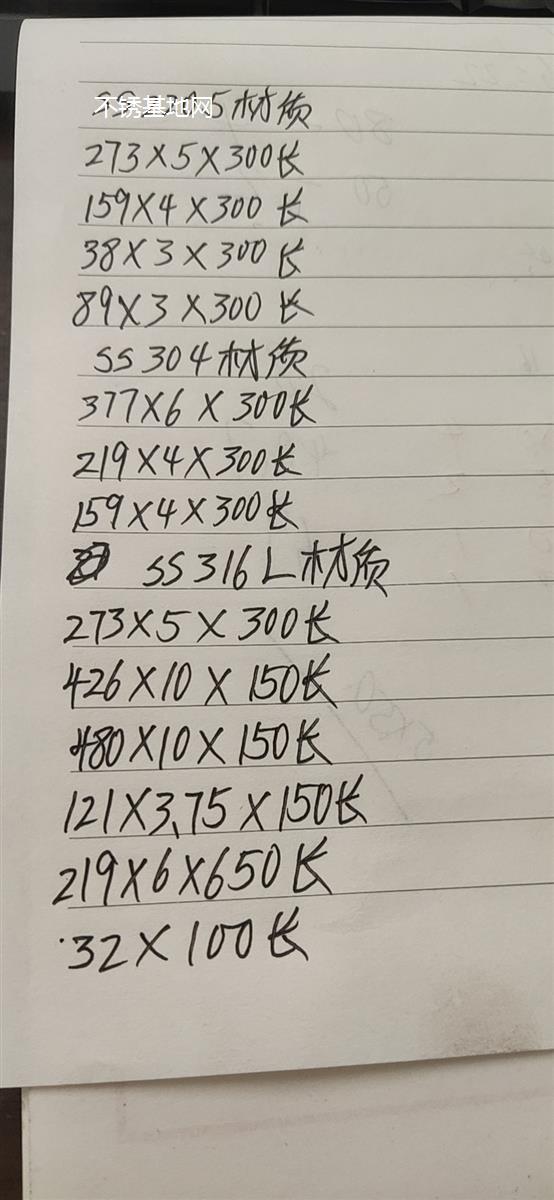 不锈基地网
5材质
273×5×300长
159×4×300长
38×3×300长
89×3×300长
SS304材质
377×6×300长
219×4×300长
159×4×300长
SS316L材质
273×5×300长
426×10×150长
480×10×150长
121×3.75×150长
219×6×650长
32×100长